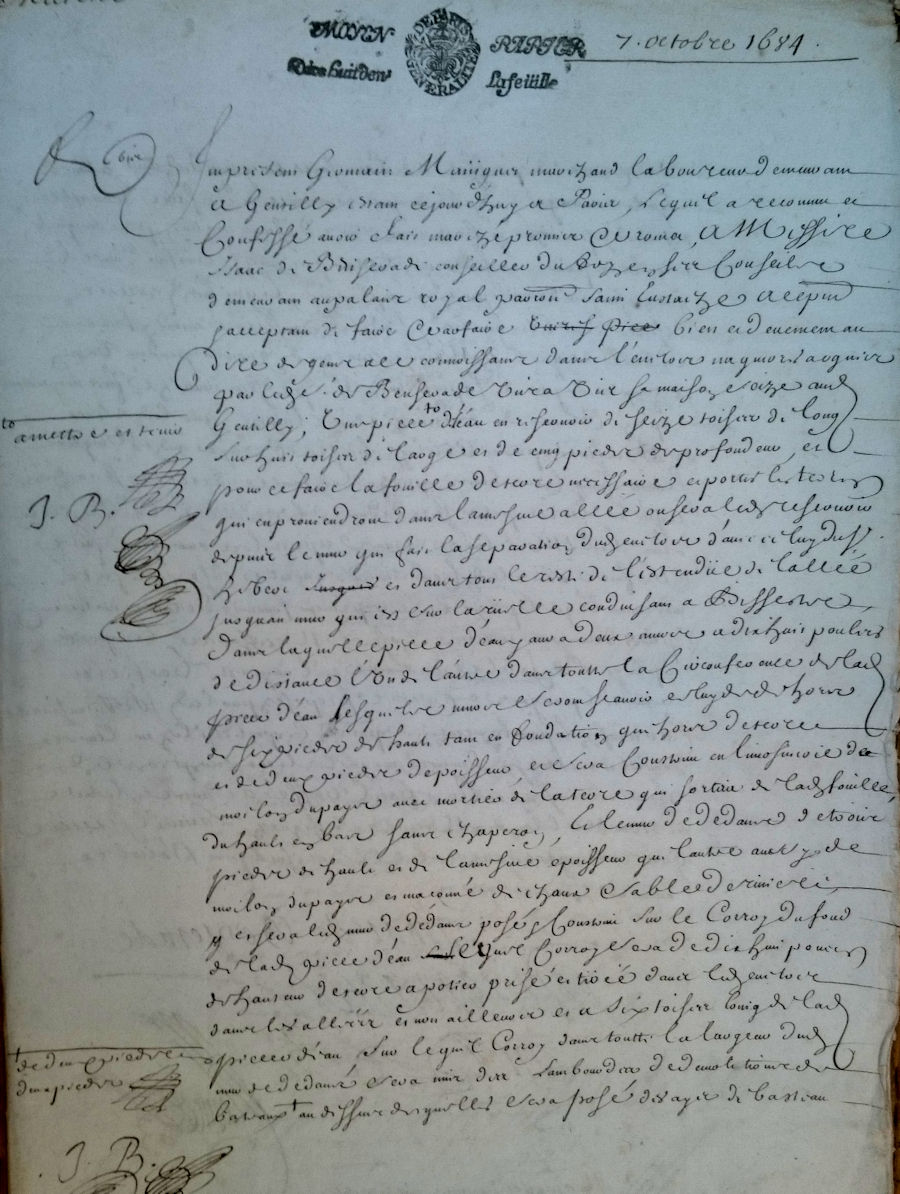 MOYEN PAPIER
Dixe huit den. La feüille
GENERALITE DE PARIS
7. octobre 1684.
Fut present Germain marchand laboureur demeurant
a Gentilly estant cejourdhuy a Paris, Lequel a reconnu et
Confessé avoir fait marché promis et promet, a Messire
Isaac de Benserade conseiller du Roy en ses Conseils
demeurant au palais royal paroisse Saint Eustache a ce present
acceptant de faire et parfaire bien et deuement au
dire de gens a ce connoissans dans l'enclos acquis
par led. Sr. de Benserade vis a vis sa maison size aud.
Gentilly, Une piece d'eau en reservoir de seize toises de long
to a mettre et tenir
Sur huit toises de large et de cinq pieds de profondeur, et
J. B.
pour ce faire la fouille de terre necessaire et porter les terres
qui en proviendront dans la mesme allée ou sera led. reservoir
depuis le mur qui fait la separation dud. enclos d'avec celuy du S.
et dans tout le reste de l'estendüe de l'allée
jusqu'au mur qui est sur la ruelle conduisant a Bissestre,
Dans laquelle piece d'eau y aura deux murs a dix huit poulces
de distance l'un de l'autre dans toutte la Circonference de lad.
piece d'eau Lesquels murs seront scavoir celuy de dehors
de six pieds de hault tant en fondation que hors de terre
et de deux pieds d'epoisseur, et sera Construit en limosinerie de
moilon du pays avec mortier de la terre qui sortira de lad. fouille,
du hault en bas sans chaperon, Et le mur de dedans de trois
pieds de hault et de la mesme epoisseur que l'autre aussy de
moilon du pays et maçonné de chaux et sable de riviere,
et sera led. mur de dedans posé et Construit sur le Corroy du fond
de lad. piece d'eau Lequel Corroy sera de dix huit pouces
de hauteur de terre a potier prise et tirée dans led. enclos
dans les allées et non ailleurs et a six toises loing de lad.
piece d'eau, Sur lequel Corroy dans toutte la largeur dud.
to de deux pieds
mur de dedans sera mis des lambourdes de demolition de
bateaux to au dessus desquelles sera posé des ais de basteau
J. B.